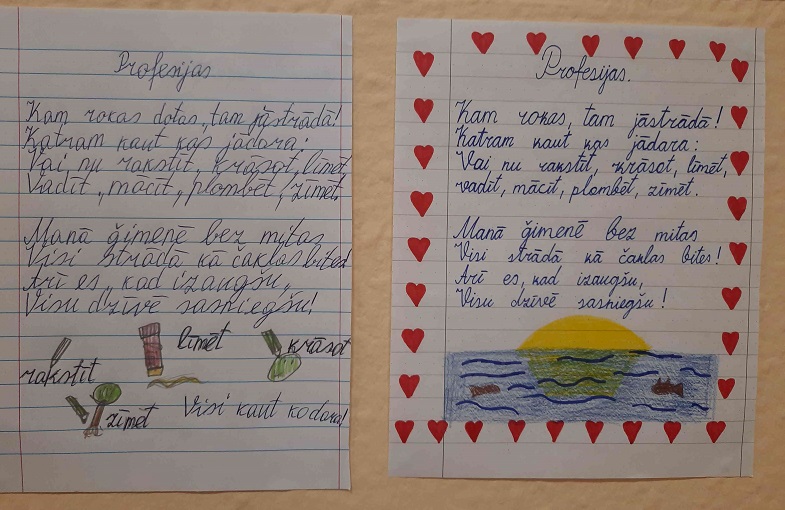 Profesijas
Kam rokas dotas, tam jāstrādā!
Katram kaut kas jādara:
Vai nu rakstīt, krāsot, līmēt,
Vadīt, mācīt, plombēt, zīmēt.
Manā ģimenē bez mitas
Visi strādā kā čaklas bites!
Arī es, kad izaugšu,
Visu dzīvē sasniegšu!
līmēt
krāsot
rakstīt
zīmēt
Visi kaut ko dara!
Profesijas.
Kam rokas, tam jāstrādā!
Katram kaut kas jādara:
Vai nu rakstīt, krāsot, līmēt,
vadīt, mācīt, plombēt, zīmēt.
Manā ģimenē bez mitas
Visi strādā kā čaklas bites!
Arī es, kad izaugšu,
Visu dzīvē sasniegšu!